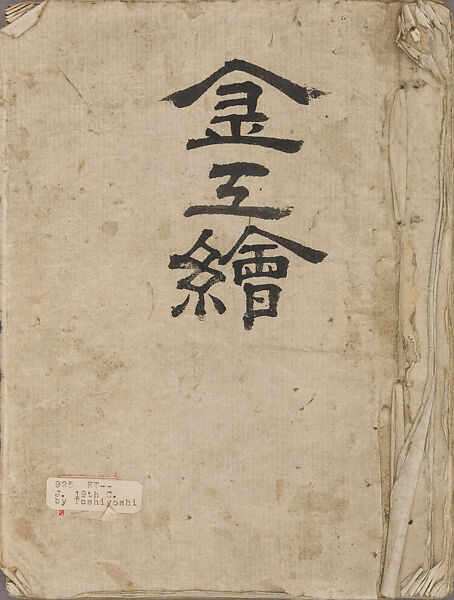 金工繪
925 ET--
J. 19th C.
by Toshiyoshi